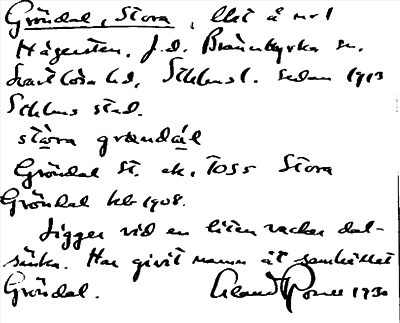 Gröndal, Stora, lht å nr 1
Hägersten, f.d. Brännkyrka sn,
Svartlösa hd, Sthlms l. sedan 1913
Sthlms stad.
stòra grœndál
Gröndal St. ek. 1055 Stora
Gröndal kb 1908.
Ligger vid en liten vacker dal-
sänka. Har givit namn åt samhället
Gröndal. 1930